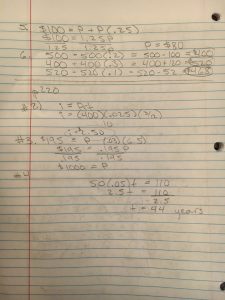 5. $100 = P + P(.25)
$100 = 1.25P
1.25 1.25P P = $80
6. 500 - 500(.2) = 500 - 100 = $400
400 + 400(.3) = 400 + 120 = $520
520 - 520(.1) = 520 - 52 = $468
p220
#2) i = Prt
i = (400)(.025)(3/12)
i = 2.50
#3. $195 = P (.03)(6.5)
$195 = .195P
.195 .195
$1000 = P
#4
50(.05)t = 110
2.5t = 110
2.5
t = 44 years